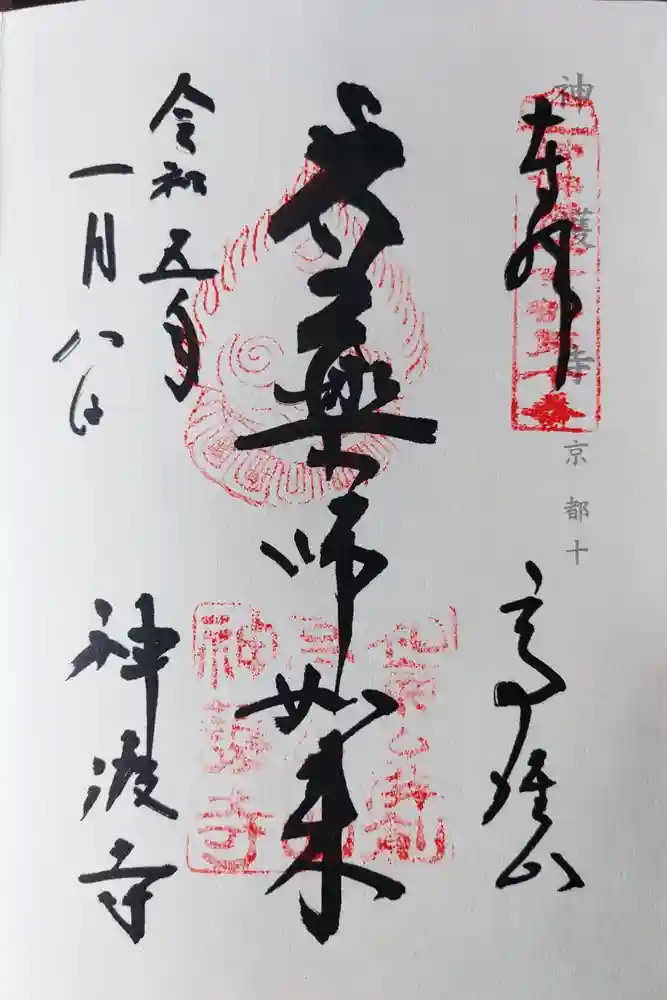 神護寺 京都十
奉拝 高雄山
薬師如来
令和五年
一月八日
神護寺
神護寺